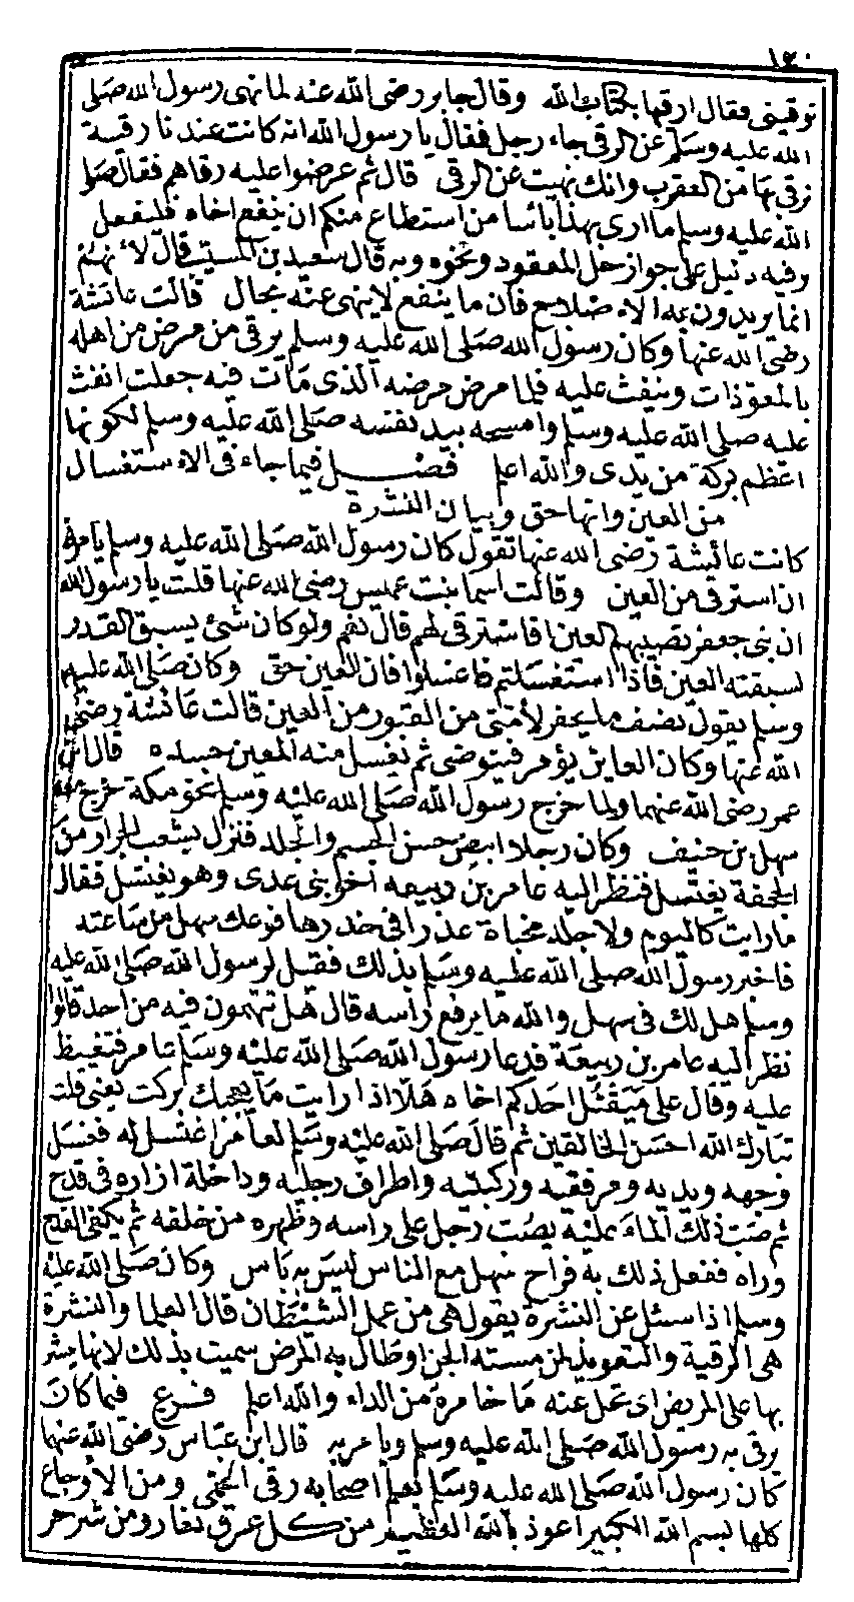 ١٤٠
ترقيني فقال ارقها بكتاب الله وقال جابر رضى الله عنه لما نهى رسول الله صلى
الله عليه وسلم عن الرقى جاء رجل فقال يا رسول الله انه كانت عندنا رقية
نرقى بها من العقرب وانك نهيت عن الرقى قال ثم عرضوا عليه رقاهم فقال صلى
الله عليه وسلم ما ارى بهذا بائسا من استطاع منكم ان ينفع اخاه فليفعل
وفيه دليل على جواز حل المعقود ونحوه وبه قال سعيد بن المسيب قال لانهم
انما يريدون به الاصلاح فان ما ينفع لا ينهى عنه بحال قالت عائشة
رضى الله عنها وكان رسول الله صلى الله عليه وسلم يرقى من مرض من اهله
بالمعوذات وينفث عليه فلما مرض مرضه الذى مات فيه جعلت انفث
عليه صلى الله عليه وسلم وامسحه بيد نفسه صلى الله عليه وسلم لكونها
اعظم بركة من يدى والله اعلم فصل فيما جاء فى الاستغسال
من العين وانها حق وبيان النشرة
كانت عائيشة رضى الله عنها تقول كان رسول الله صلى الله عليه وسلم يامرنى
ان استرقى من العين وقالت اسما بنت عميس رضى الله عنها قلت يا رسول الله
ان بنى جعفر تصيبهم العين افاسترقى لهم قال نعم ولو كان شئ يسبق القدر
لسبقته العين فاذا استغسلتم فاغسلوا فان العين حق وكان صلى الله عليه
وسلم يقول نصف ما يحفر لأمتى من القبور من العين قالت عائشة رضى
الله عنها وكان العاين يؤمر فيتوضى ثم يغسل منه المعين جسده قال ابن
عمر رضى الله عنهما ولما خرج رسول الله صلى الله عليه وسلم نحو مكة خرج معه
سهل بن حنيف وكان رجلا ابيض حسن الجسم والجلد فنزل بشعب الخرار من
الجحفة يغتسل فنظر اليه عامر بن ربيعه اخو بنى عدى وهو يغتسل فقال
ما رايت كاليوم ولا جلد مخباة عذرا فى خدرها فوعك سهل من ساعته
فاخبر رسول الله صلى الله عليه وسلم بذلك فقيل لرسول الله صلى الله عليه
وسلم هل لك فى سهل والله ما يرفع رأسه قال هل تتهمون فيه من احد قالوا
نظر اليه عامر بن ربيعة فدعا رسول الله صلى الله عليه وسلم عامر فتغيظ
عليه وقال على م يقتل احدكم اخاه هلا اذا رايت ما يعجبك بركت يعنى قلت
تبارك الله احسن الخالقين ثم قال صلى الله عليه وسلم لعامر اغتسل له فغسل
وجهه ويديه ومرفقيه وركبتيه واطراف رجليه وداخلة ازاره فى قدح
ثم صب ذلك الماء عليه يصب رجل على راسه وظهره من خلفه ثم يكفى القدح
وراه ففعل ذلك به فراح سهل مع الناس ليس به باس وكان صلى الله عليه
وسلم اذا سئل عن النشرة يقول هى من عمل الشيطان قال العلما والنشرة
هى الرقية والتعويذ لمن مسته الجن او طال به المرض سميت بذلك لانها ينشر
بها على المريض اى تحل عنه ما خامره من الداء والله اعلم فرع فيما كان
يرقى به رسول الله صلى الله عليه وسلم ويامر به قال ابن عباس رضى الله عنهما
كان رسول الله صلى الله عليه وسلم يعلم اصحابه رقى الحمى ومن الأوجاع
كلها بسم الله الكبير اعوذ بالله العظيم من كل عرق نعار ومن شر حر